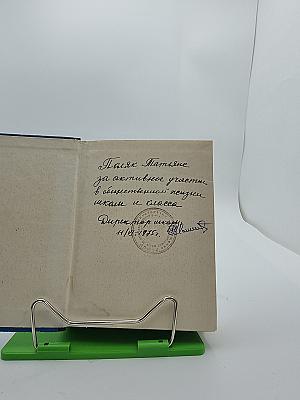 Поляк Татьяне
за активное участие
в общественной жизни
школы и класса
Директор школы